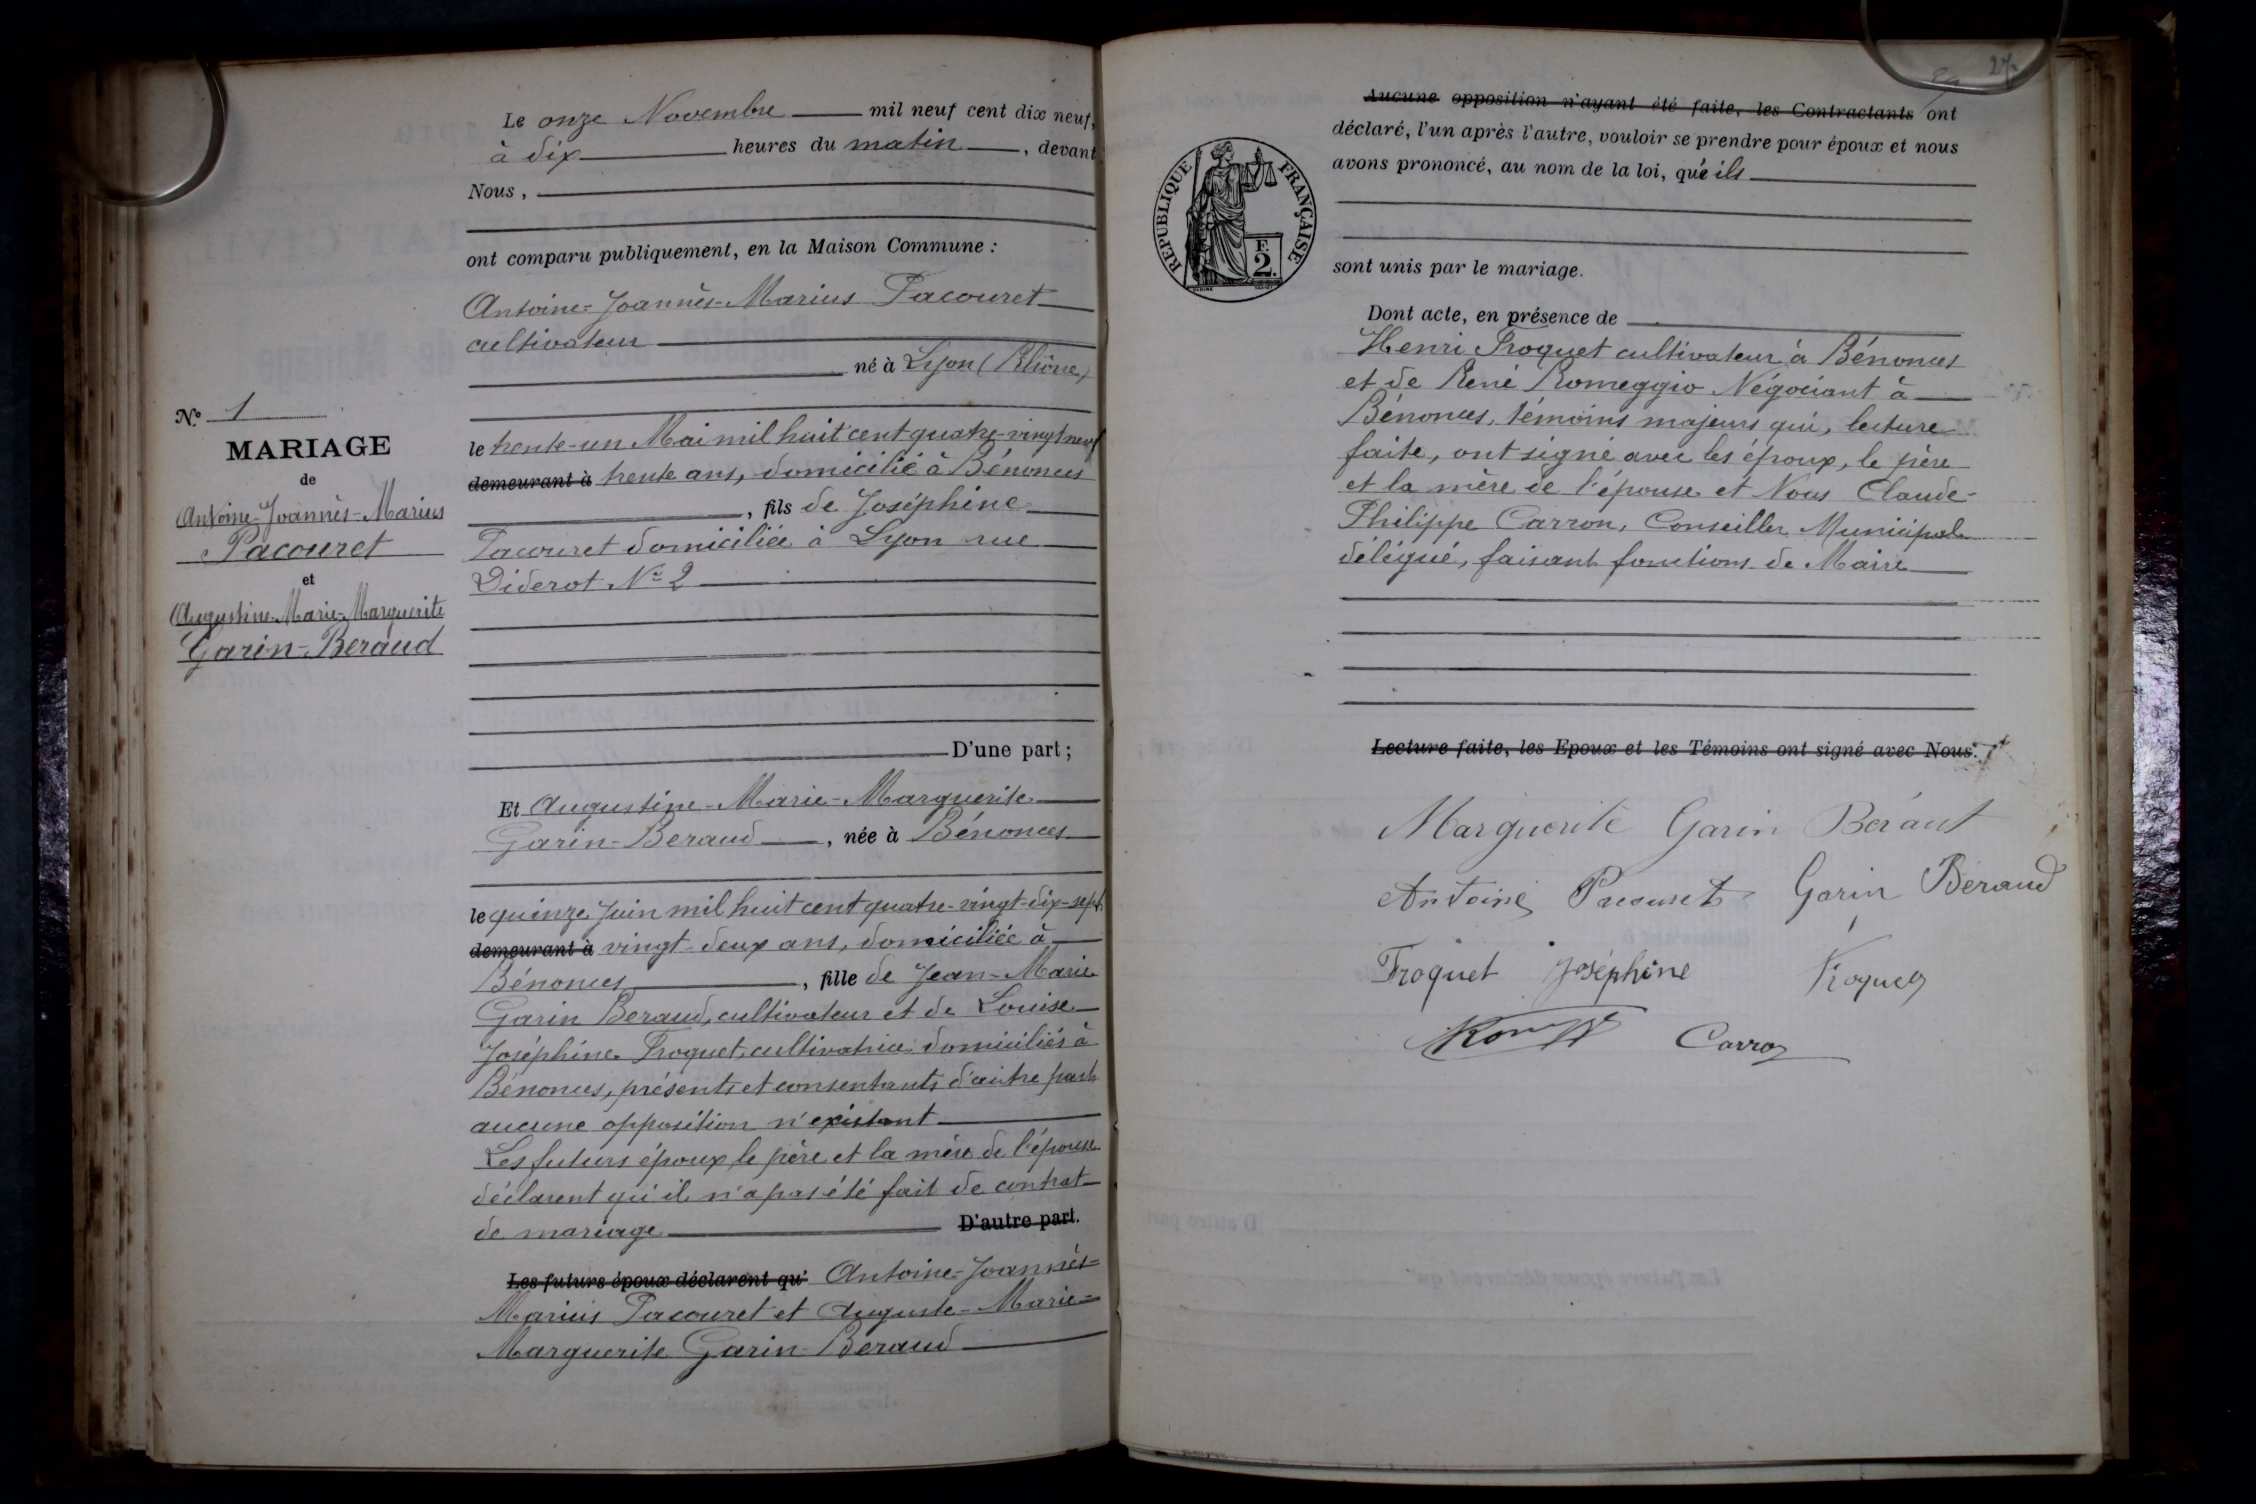 Le onze Novembre mil neuf cent dix neuf,
à dix heures du matin, devant
Nous,
ont comparu publiquement, en la Maison Commune :
Antoine-Joannès-Marius Pacouret
cultivateur
né à Lyon (Rhône)
le trente-un Mai mil huit cent quatre-vingt neuf
demeurant à trente ans, domicilié à Bénonces
, fils de Joséphine
Pacouret domiciliée à Lyon rue
Diderot N° 2
D'une part ;
Et Augustine-Marie-Marguerite
Garin-Beraud, née à Bénonces
le quinze Juin mil huit cent quatre-vingt-dix-sept
demeurant à vingt-deux ans, domiciliée à
Bénonces, fille de Jean-Marie
Garin Beraud, cultivateur et de Louise
Joséphine Troquet, cultivatrice domiciliés à
Bénonces, présents et consentants d'autre part
aucune opposition n'existant
Les futurs époux, le père et la mère de l'épouse
déclarent qu'il n'a pas été fait de contrat
de mariage D'autre part.
Les futurs époux déclarent qu' Antoine-Joannès-
Marius Pacouret et Auguste-Marie-
Marguerite Garin-Beraud
N° 1
MARIAGE
de
Antoine-Joannès-Marius
Pacouret
et
Augustine-Marie-Marguerite
Garin-Beraud
27
Aucune opposition n'ayant été faite, les Contractants ont
déclaré, l'un après l'autre, vouloir se prendre pour époux et nous
avons prononcé, au nom de la loi, qu'ils
REPUBLIQUE FRANÇAISE
F.
2.
sont unis par le mariage.
Dont acte, en présence de
Henri Troquet cultivateur à Bénonces
et de René Romeggio Négociant à
Bénonces, témoins majeurs qui, lecture
faite, ont signé avec les époux, le père
et la mère de l'épouse et Nous Claude-
Philippe Carron, Conseiller Municipal
délégué, faisant fonctions de Maire
Lecture faite, les Epoux et les Témoins ont signé avec Nous.
Marguerite Garin Béraut
Antoine Pacouret Garin Beraud
Troquet Joséphine Troquet
Carron